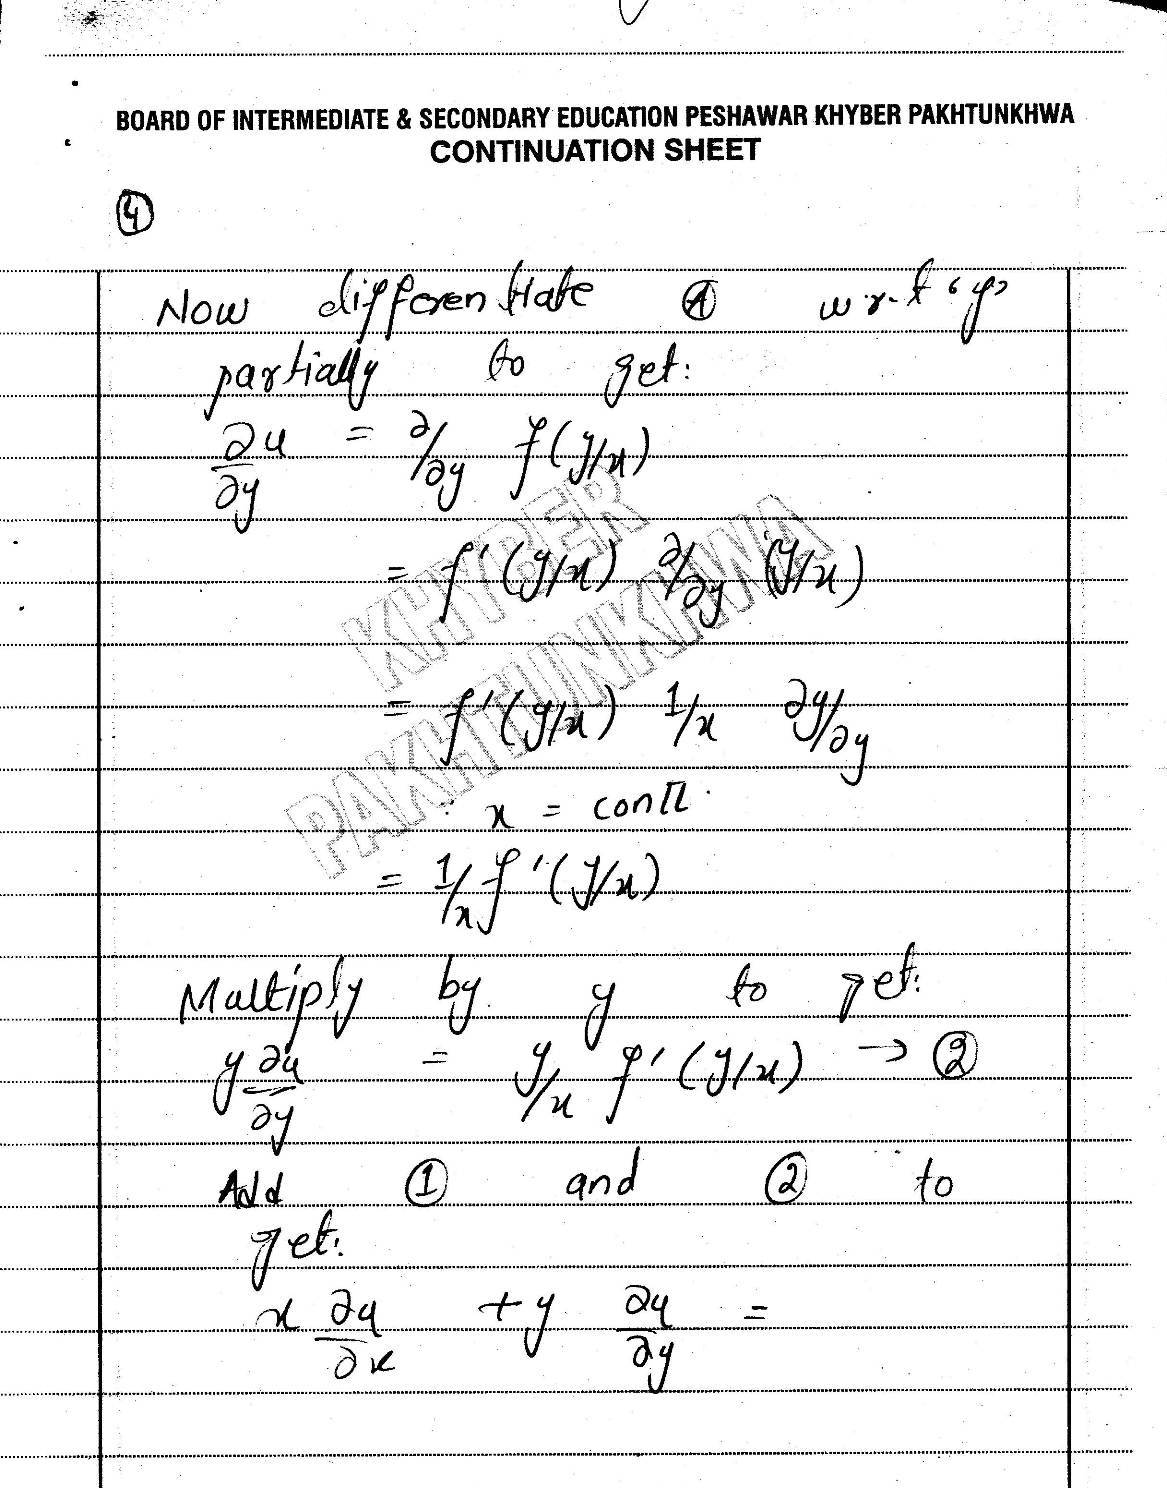 BOARD OF INTERMEDIATE & SECONDARY EDUCATION PESHAWAR KHYBER PAKHTUNKHWA
CONTINUATION SHEET
④
Now differentiate Ⓐ w.r.t 'y'
partially to get:
∂u/∂y = ∂/∂y f(y/x)
= f'(y/x) ∂/∂y (y/x)
= f'(y/x) 1/x ∂y/∂y
∵ x =
= 1/x f'(y/x)
Multiply by y to get:
y ∂u/∂y = y/x f'(y/x) → ②
Add ① and ② to
get:
x ∂u/∂x + y ∂u/∂y =
KHYBER
PAKHTUNKHWA